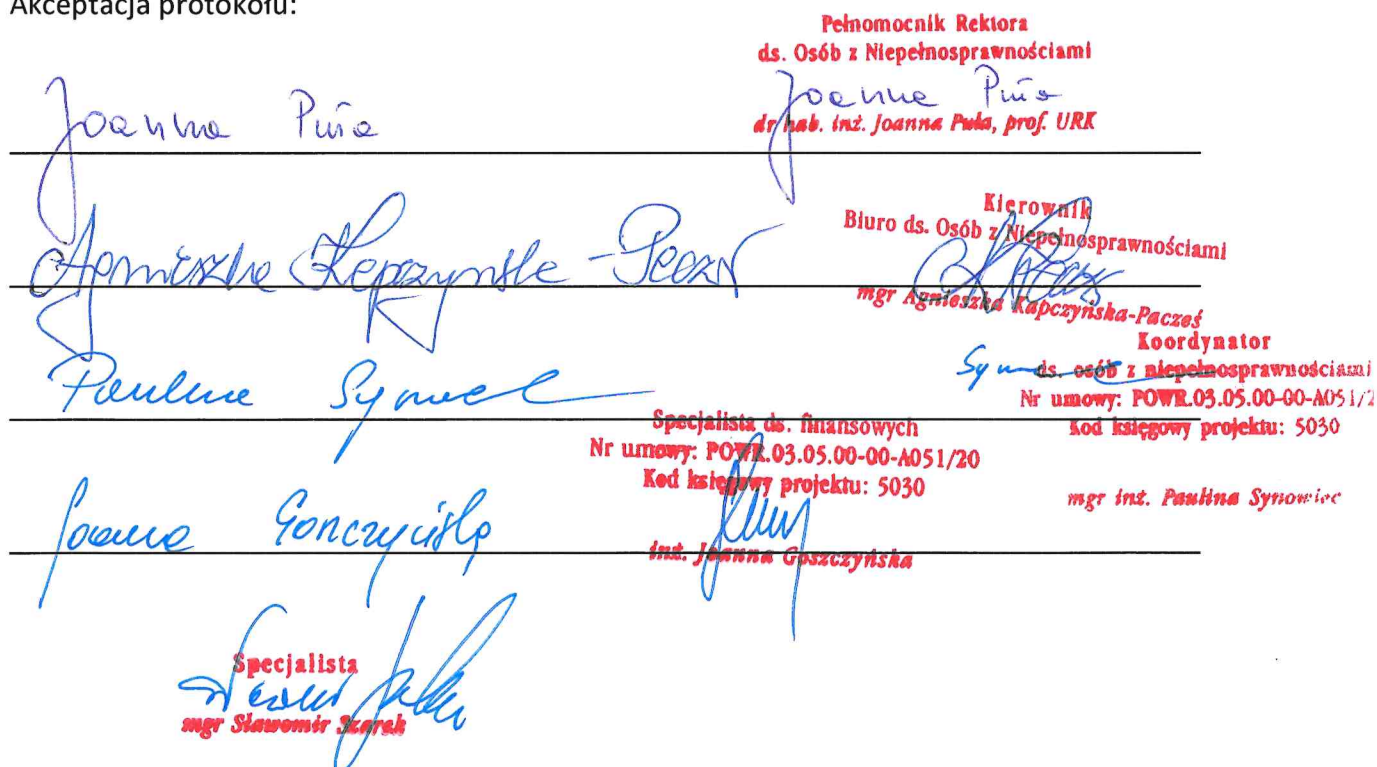 Akceptacja protokołu:
Pełnomocnik Rektora
ds. Osób z Niepełnosprawnościami
Joanna Puła
Joanna Puła
dr hab. inż. Joanna Puła, prof. URK
Kierownik
Biuro ds. Osób z Niepełnosprawnościami
Agnieszka Kapczyńska-Pacześ
mgr Agnieszka Kapczyńska-Pacześ
Koordynator
ds. osób z niepełnosprawnościami
Nr umowy: POWR.03.05.00-00-A051/2
Kod księgowy projektu: 5030
Paulina Synowiec
mgr inż. Paulina Synowiec
Specjalista ds. finansowych
Nr umowy: POWR.03.05.00-00-A051/20
Kod księgowy projektu: 5030
Joanna Goszczyńska
inż. Joanna Goszczyńska
Specjalista
mgr Sławomir Szarek